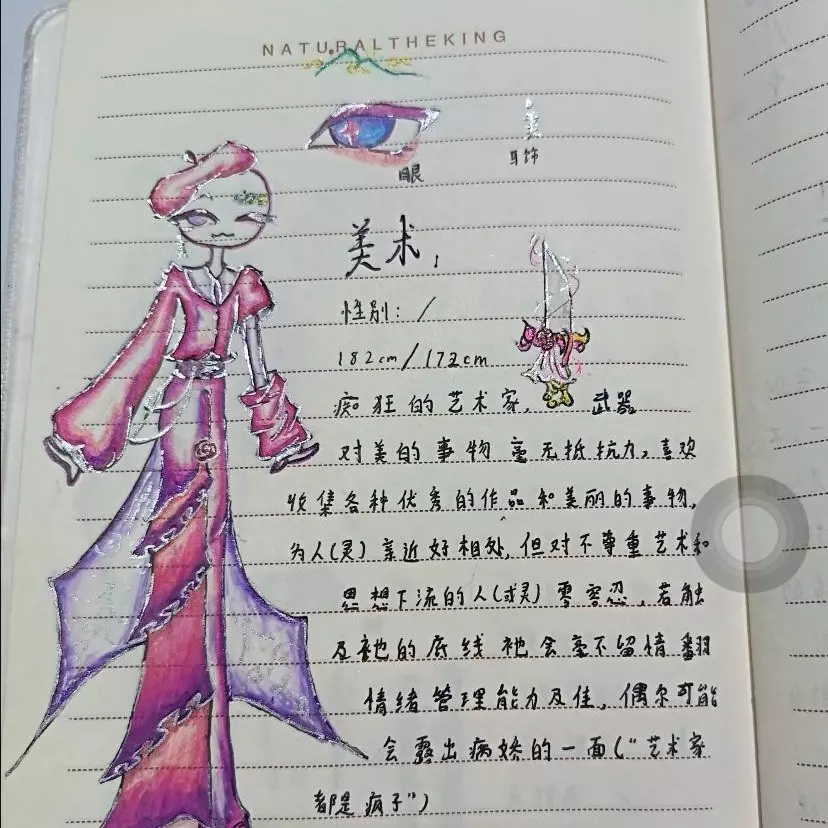 NATURALTHEKING
眼
耳饰
美术，
性别：/
182cm/172cm
痴狂的艺术家，
武器
对美的事物毫无抵抗力，喜欢
收集各种优秀的作品和美丽的事物，
为人(灵)亲近好相处，但对不尊重艺术和
思想下流的人(或灵)零容忍，若触
及祂的底线祂会毫不留情翻
情绪管理能力及佳，偶尔可能
会露出病娇的一面("艺术家
都是疯子")